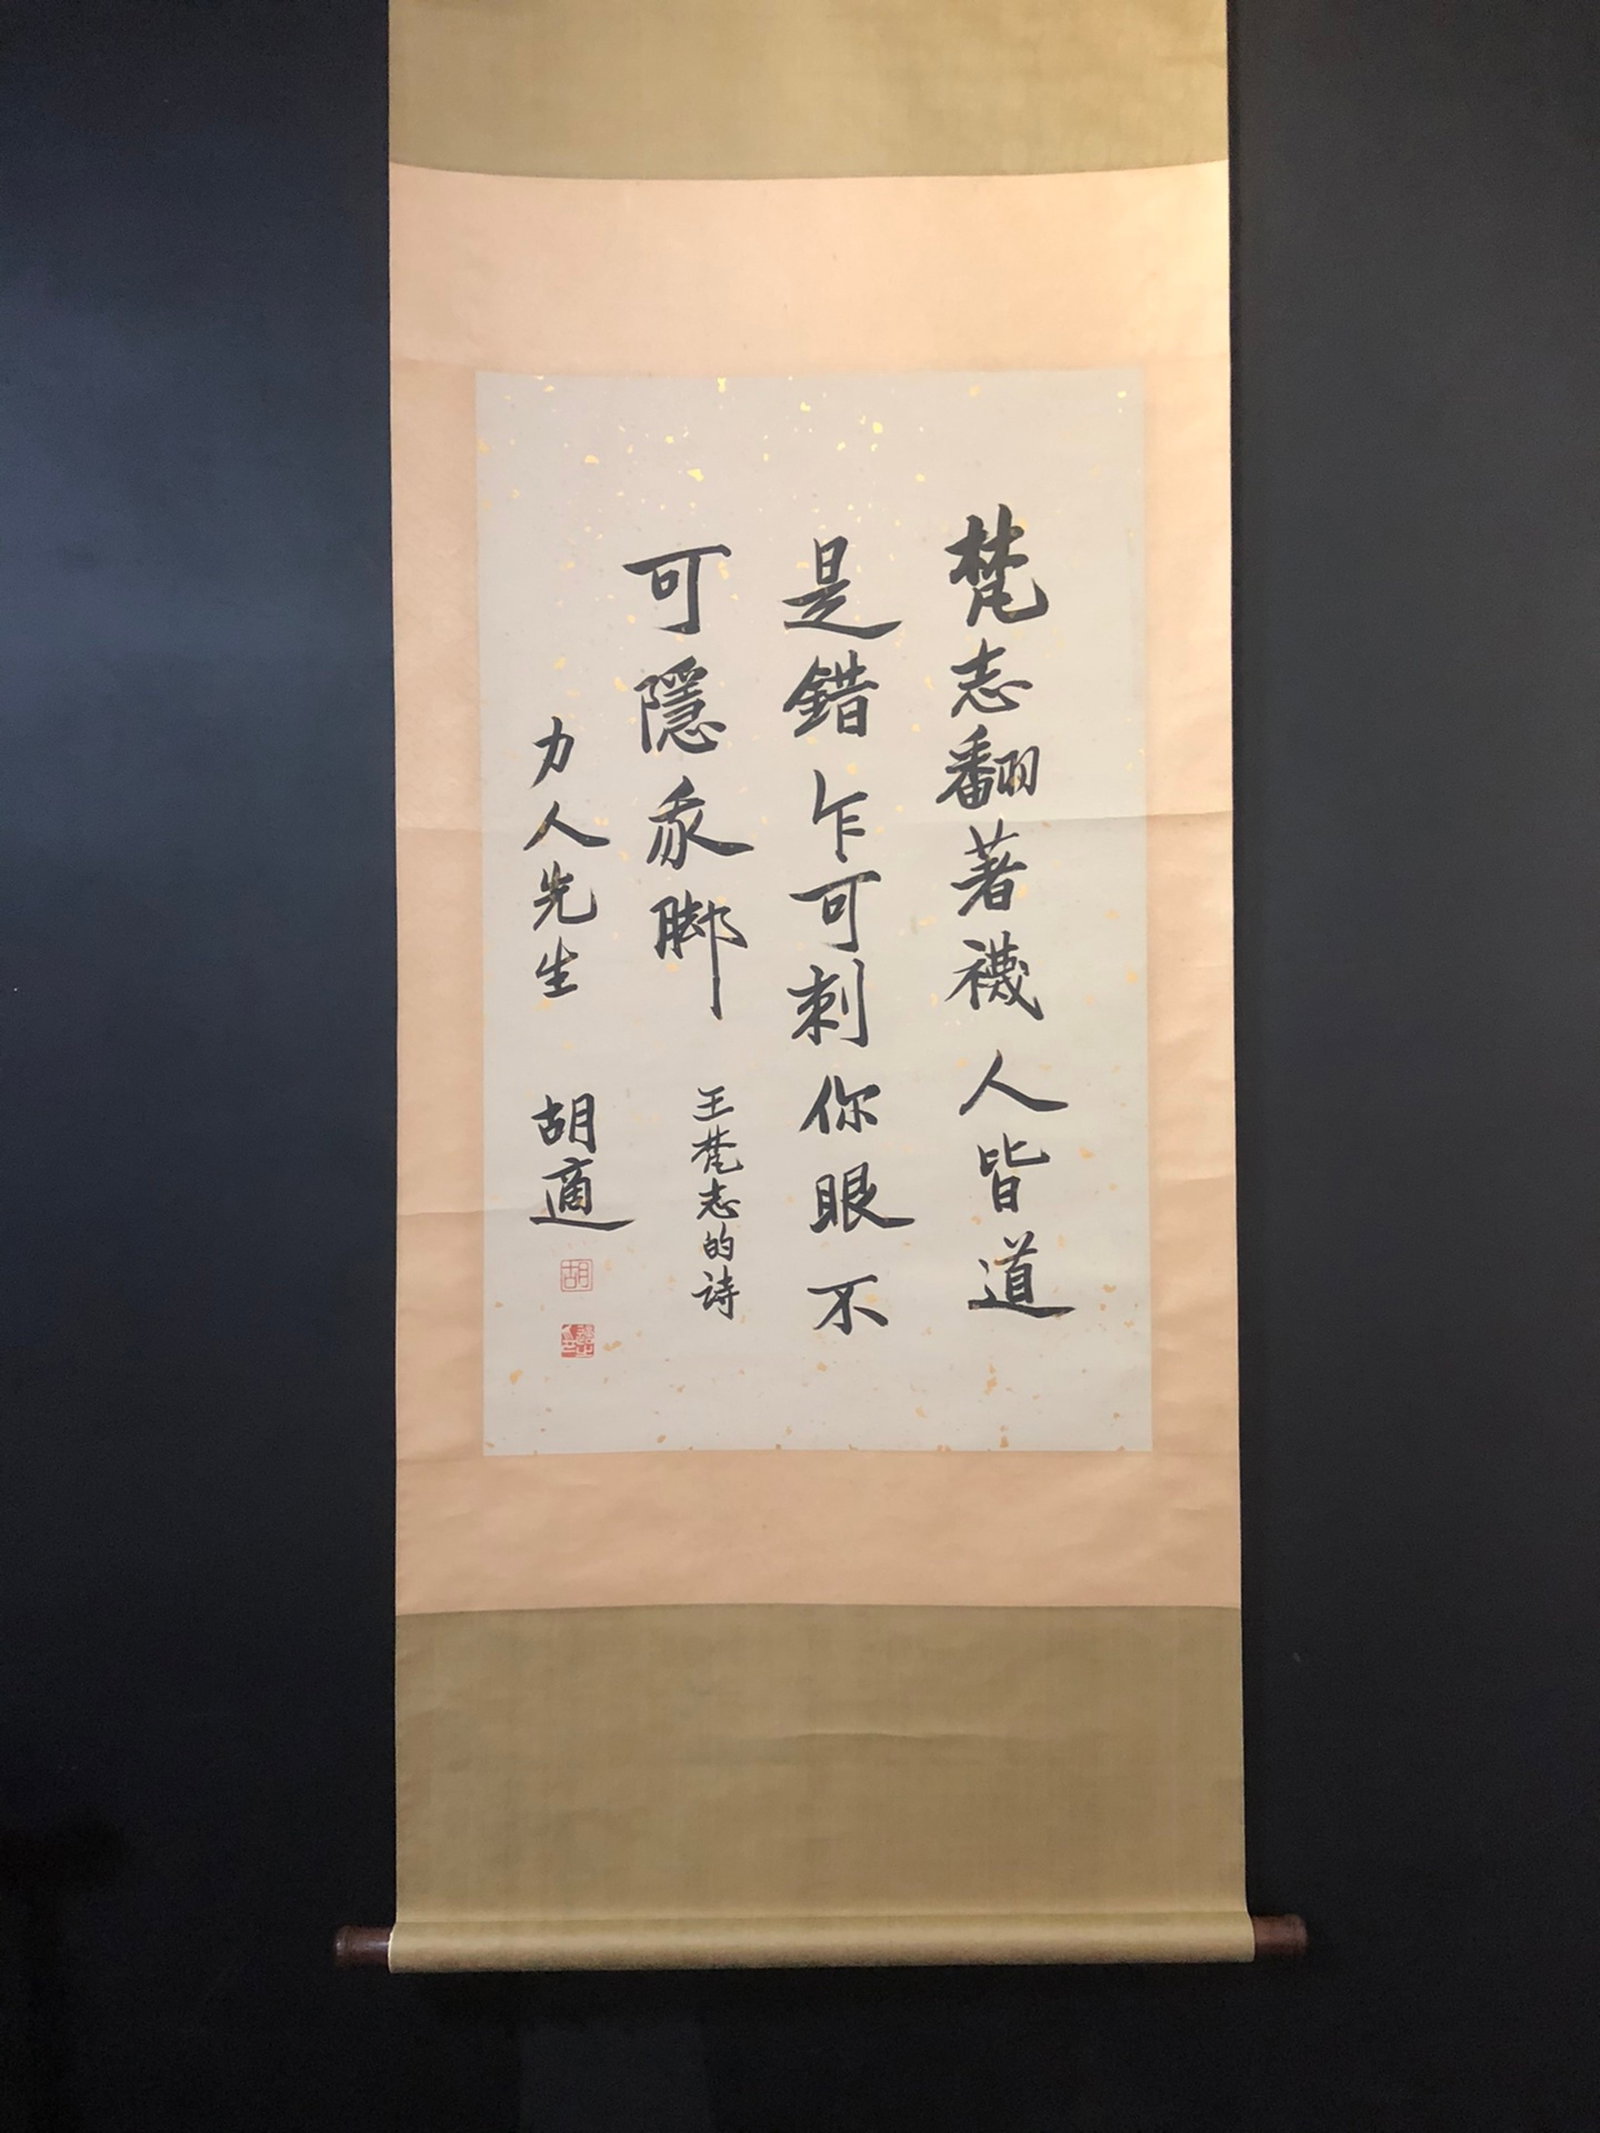 梵志翻著襪人皆道
是錯乍可刺你眼不
可隱我脚
王梵志的詩
力人先生 胡適
胡